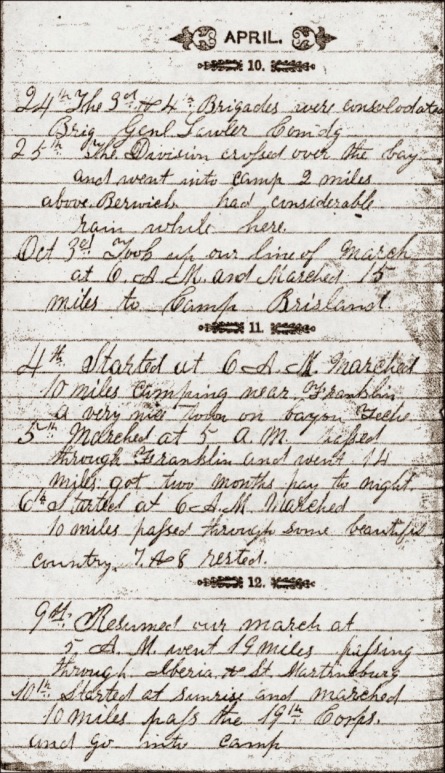 APRIL.
10.
24th The 3rd & 4th Brigades were consolodate
Brig Genl Lawler Comdg
25th The Division crossed over the bay
and went into camp 2 miles
above Berwick had considerable
rain while here.
Oct 3rd Took up our line of March
at 6 A.M. and Marched 15
miles to Camp Brisland.
11.
4th Started at 6 A.M. Marched
10 miles camping near Franklin
a very nice town on bayou Teche
5th Marched at 5 A.M. passed
through Franklin and went 14
miles got two months pay to night.
6th Started at 6 A.M. Marched
10 miles passed through some beautiful
country. 7 & 8 rested.
12.
9th. Resumed our march at
5 A.M went 19 miles passing
through Iberia & St Martinsburg
10th Started at sunrise and marched
10 miles pass the 19th Corps.
and go into camp